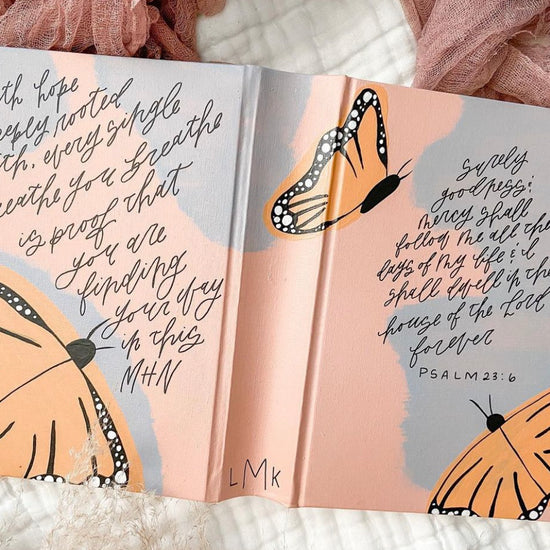 th hope
eeply rooted
th, every single
reathe you breathe
is proof that
you are
finding
your way
in this
MHN
LMK
Surely
goodness &
mercy shall
follow me all the
days of my life & I
shall dwell in the
house of the Lord
forever
PSALM 23:6